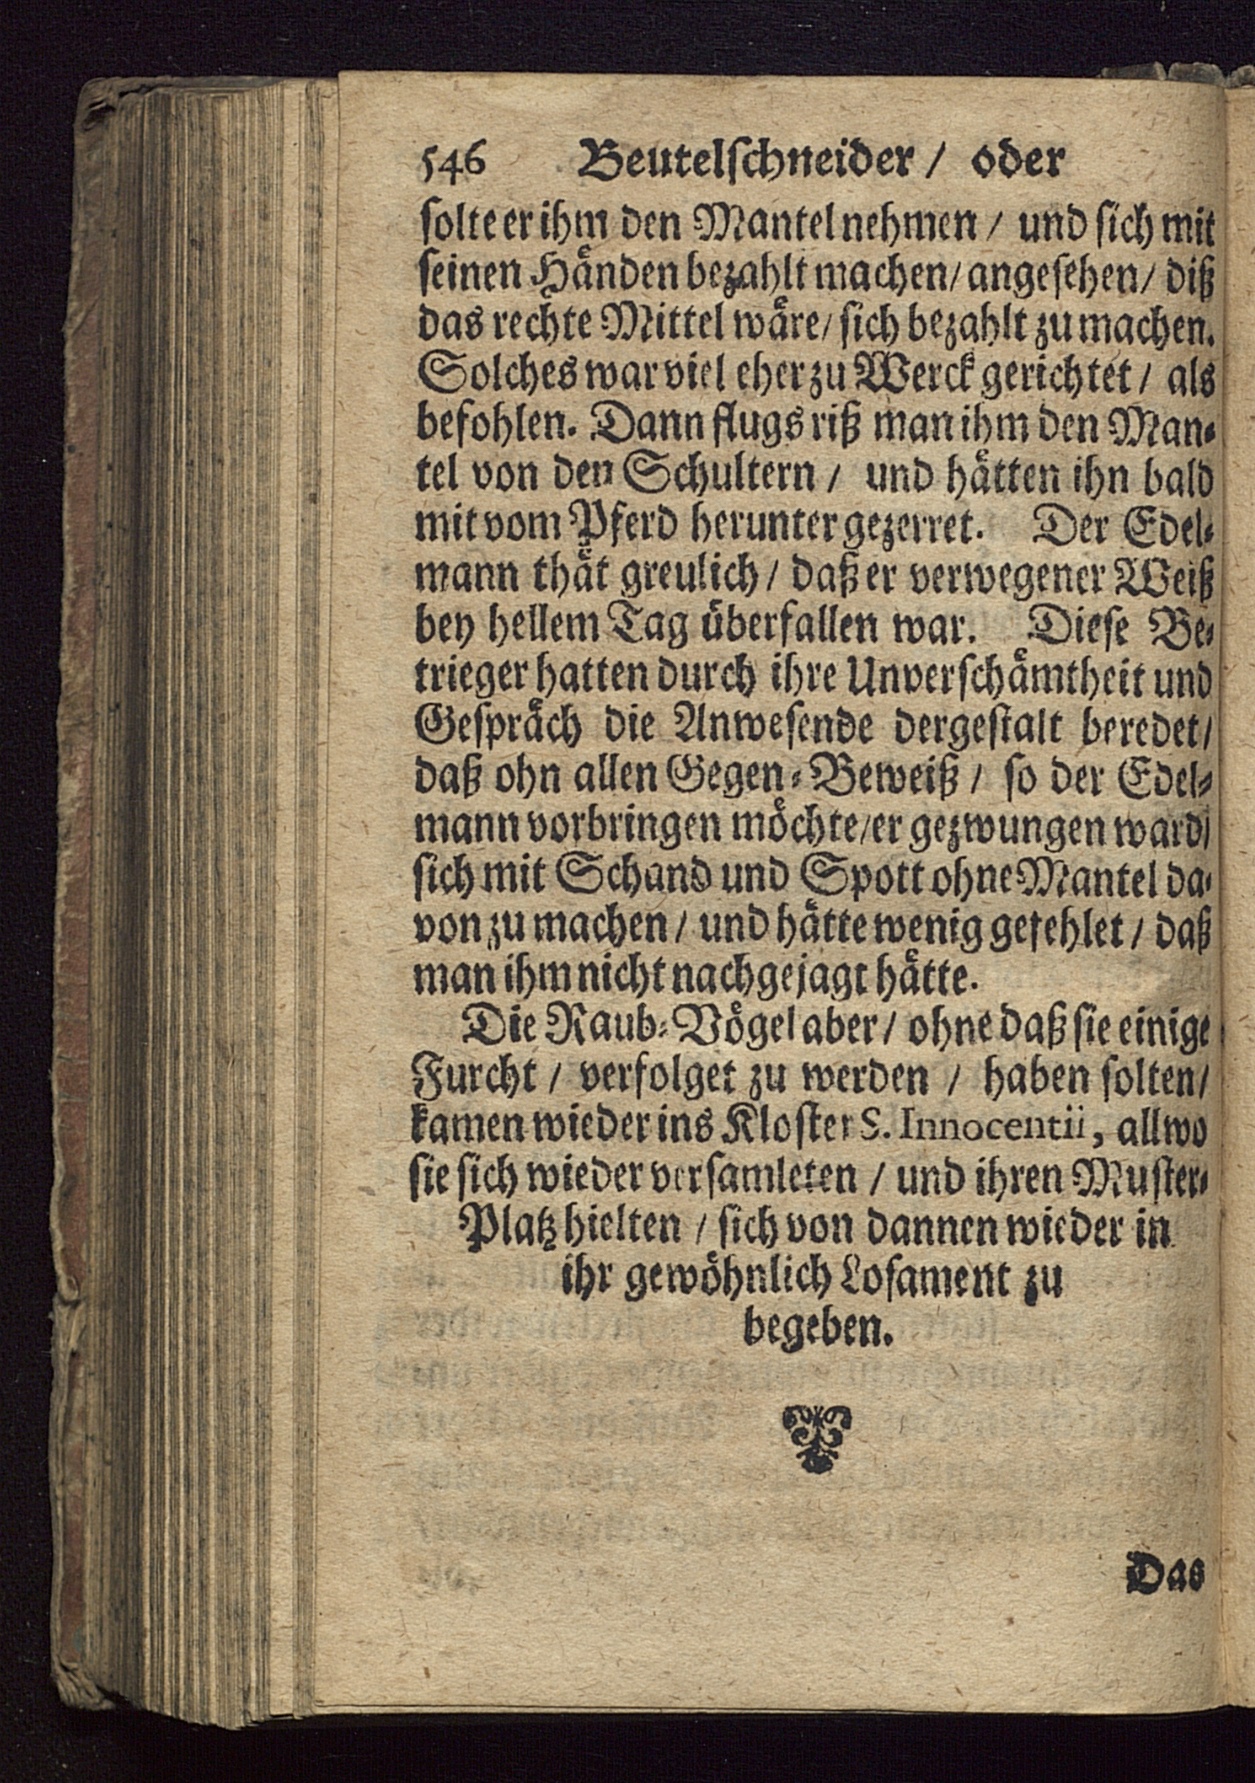 546 Beutelschneider / oder
solte er ihm den Mantel nehmen / und sich mit
seinen Händen bezahlt machen / angesehen / diß
das rechte Mittel wäre / sich bezahlt zu machen.
Solches war viel eher zu Werck gerichtet / als
befohlen. Dann flugs riß man ihm den Man-
tel von den Schultern / und hätten ihn bald
mit vom Pferd herunter gezerret. Der Edel-
mann thät greulich / daß er verwegener Weiß
bey hellem Tag überfallen war. Diese Be-
trieger hatten durch ihre Unverschämtheit und
Gespräch die Anwesende dergestalt beredet /
daß ohn allen Gegen-Beweiß / so der Edel-
mann vorbringen möchte / er gezwungen ward /
sich mit Schand und Spott ohne Mantel da-
von zu machen / und hätte wenig gefehlet / daß
man ihm nicht nachgejagt hätte.
Die Raub-Vögel aber / ohne daß sie einige
Furcht / verfolget zu werden / haben solten /
kamen wieder ins Kloster S. Innocentii, allwo
sie sich wieder versamleten / und ihren Muster-
Platz hielten / sich von dannen wieder in
ihr gewöhnlich Losament zu
begeben.
Das